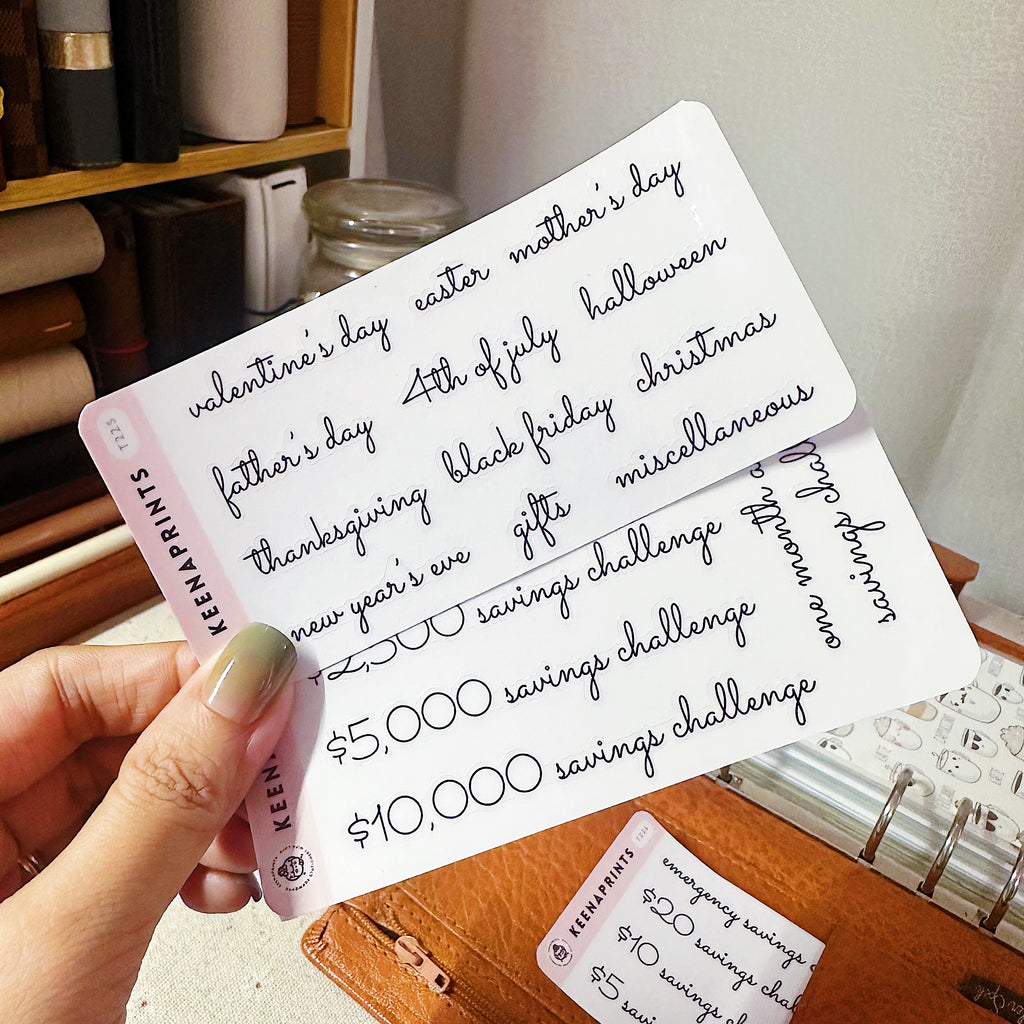 T225
KEENAPRINTS
valentine's day
easter
mother's day
father's day
4th of july
halloween
thanksgiving
black friday
christmas
new year's eve
gifts
miscellaneous
$2,500 savings challenge
$5,000 savings challenge
$10,000 savings challenge
one month
savings
KEENAPRINTS
emergency savings
$20 savings
$10 savings
$5